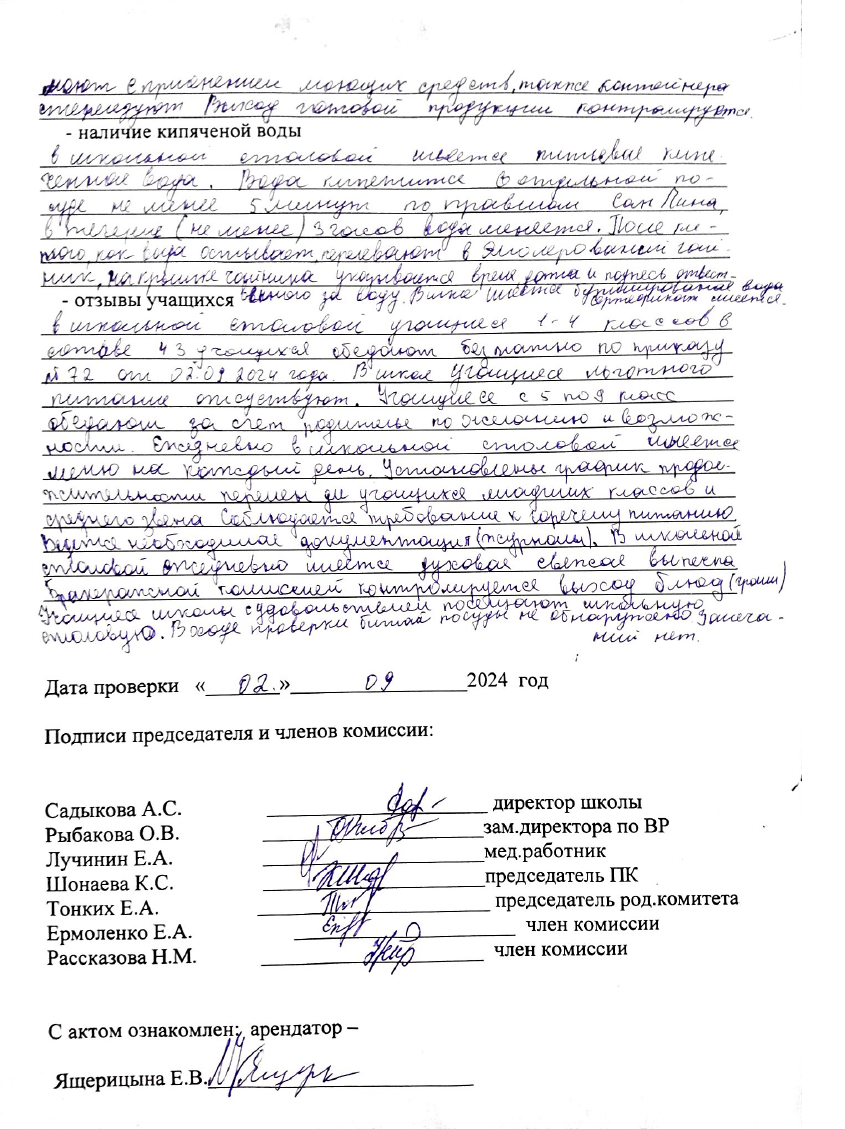 моют с применением моющих средств, также контейнера
стерелизуют Выход готовой продукции контролируются.
- наличие кипяченой воды
в школьной столовой имеется питьевые кипе-
ченная вода. Вода кипетится в отдельной по-
суде не менее 5 минут по правилам Сан Пина,
в течение (не менее) 3 часов вода меняется. После
того, как вода остывает, переливают в эмолерованный чай-
ник, на крышке чайника указывается время дата и подпись ответ-
- отзывы учащихся венного за воду. имеется бутилированая вода
сертефикат имеется.
в школьной столовой учащиеся 1-4 классов в
составе 43 учащихся обедают безплатно по приказу
№72 от 02.09.2024 года. В школе учащиеся льготного
питание отсуствуют. Учащиеся с 5 по 9 класс
обедают за счет родителье по желанию и возмож-
ности. Ежедневно в школьной столовой имеется
меню на каждый день. Установлены график продол-
жительности перемен для учащихся младших классов и
среднего звена Соблюдается требование к горячему питанию.
Ведется необходимая документация (журналы). В школьной
столовой ежедневно имеется духовая свежая выпечка
Бракеражной комиссией контролируется выход блюд (грамм)
Учащиеся школы с удовольствием посещают школьную
столовую. В ходе проверки битой посуды не обнаружено Замеча-
ний нет.
Дата проверки « 02. » 09 2024 год
Подписи председателя и членов комиссии:
Садыкова А.С. директор школы
Рыбакова О.В. зам.директора по ВР
Лучинин Е.А. мед.работник
Шонаева К.С. председатель ПК
Тонких Е.А. председатель род.комитета
Ермоленко Е.А. член комиссии
Рассказова Н.М. член комиссии
С актом ознакомлен: арендатор –
Ящерицына Е.В.